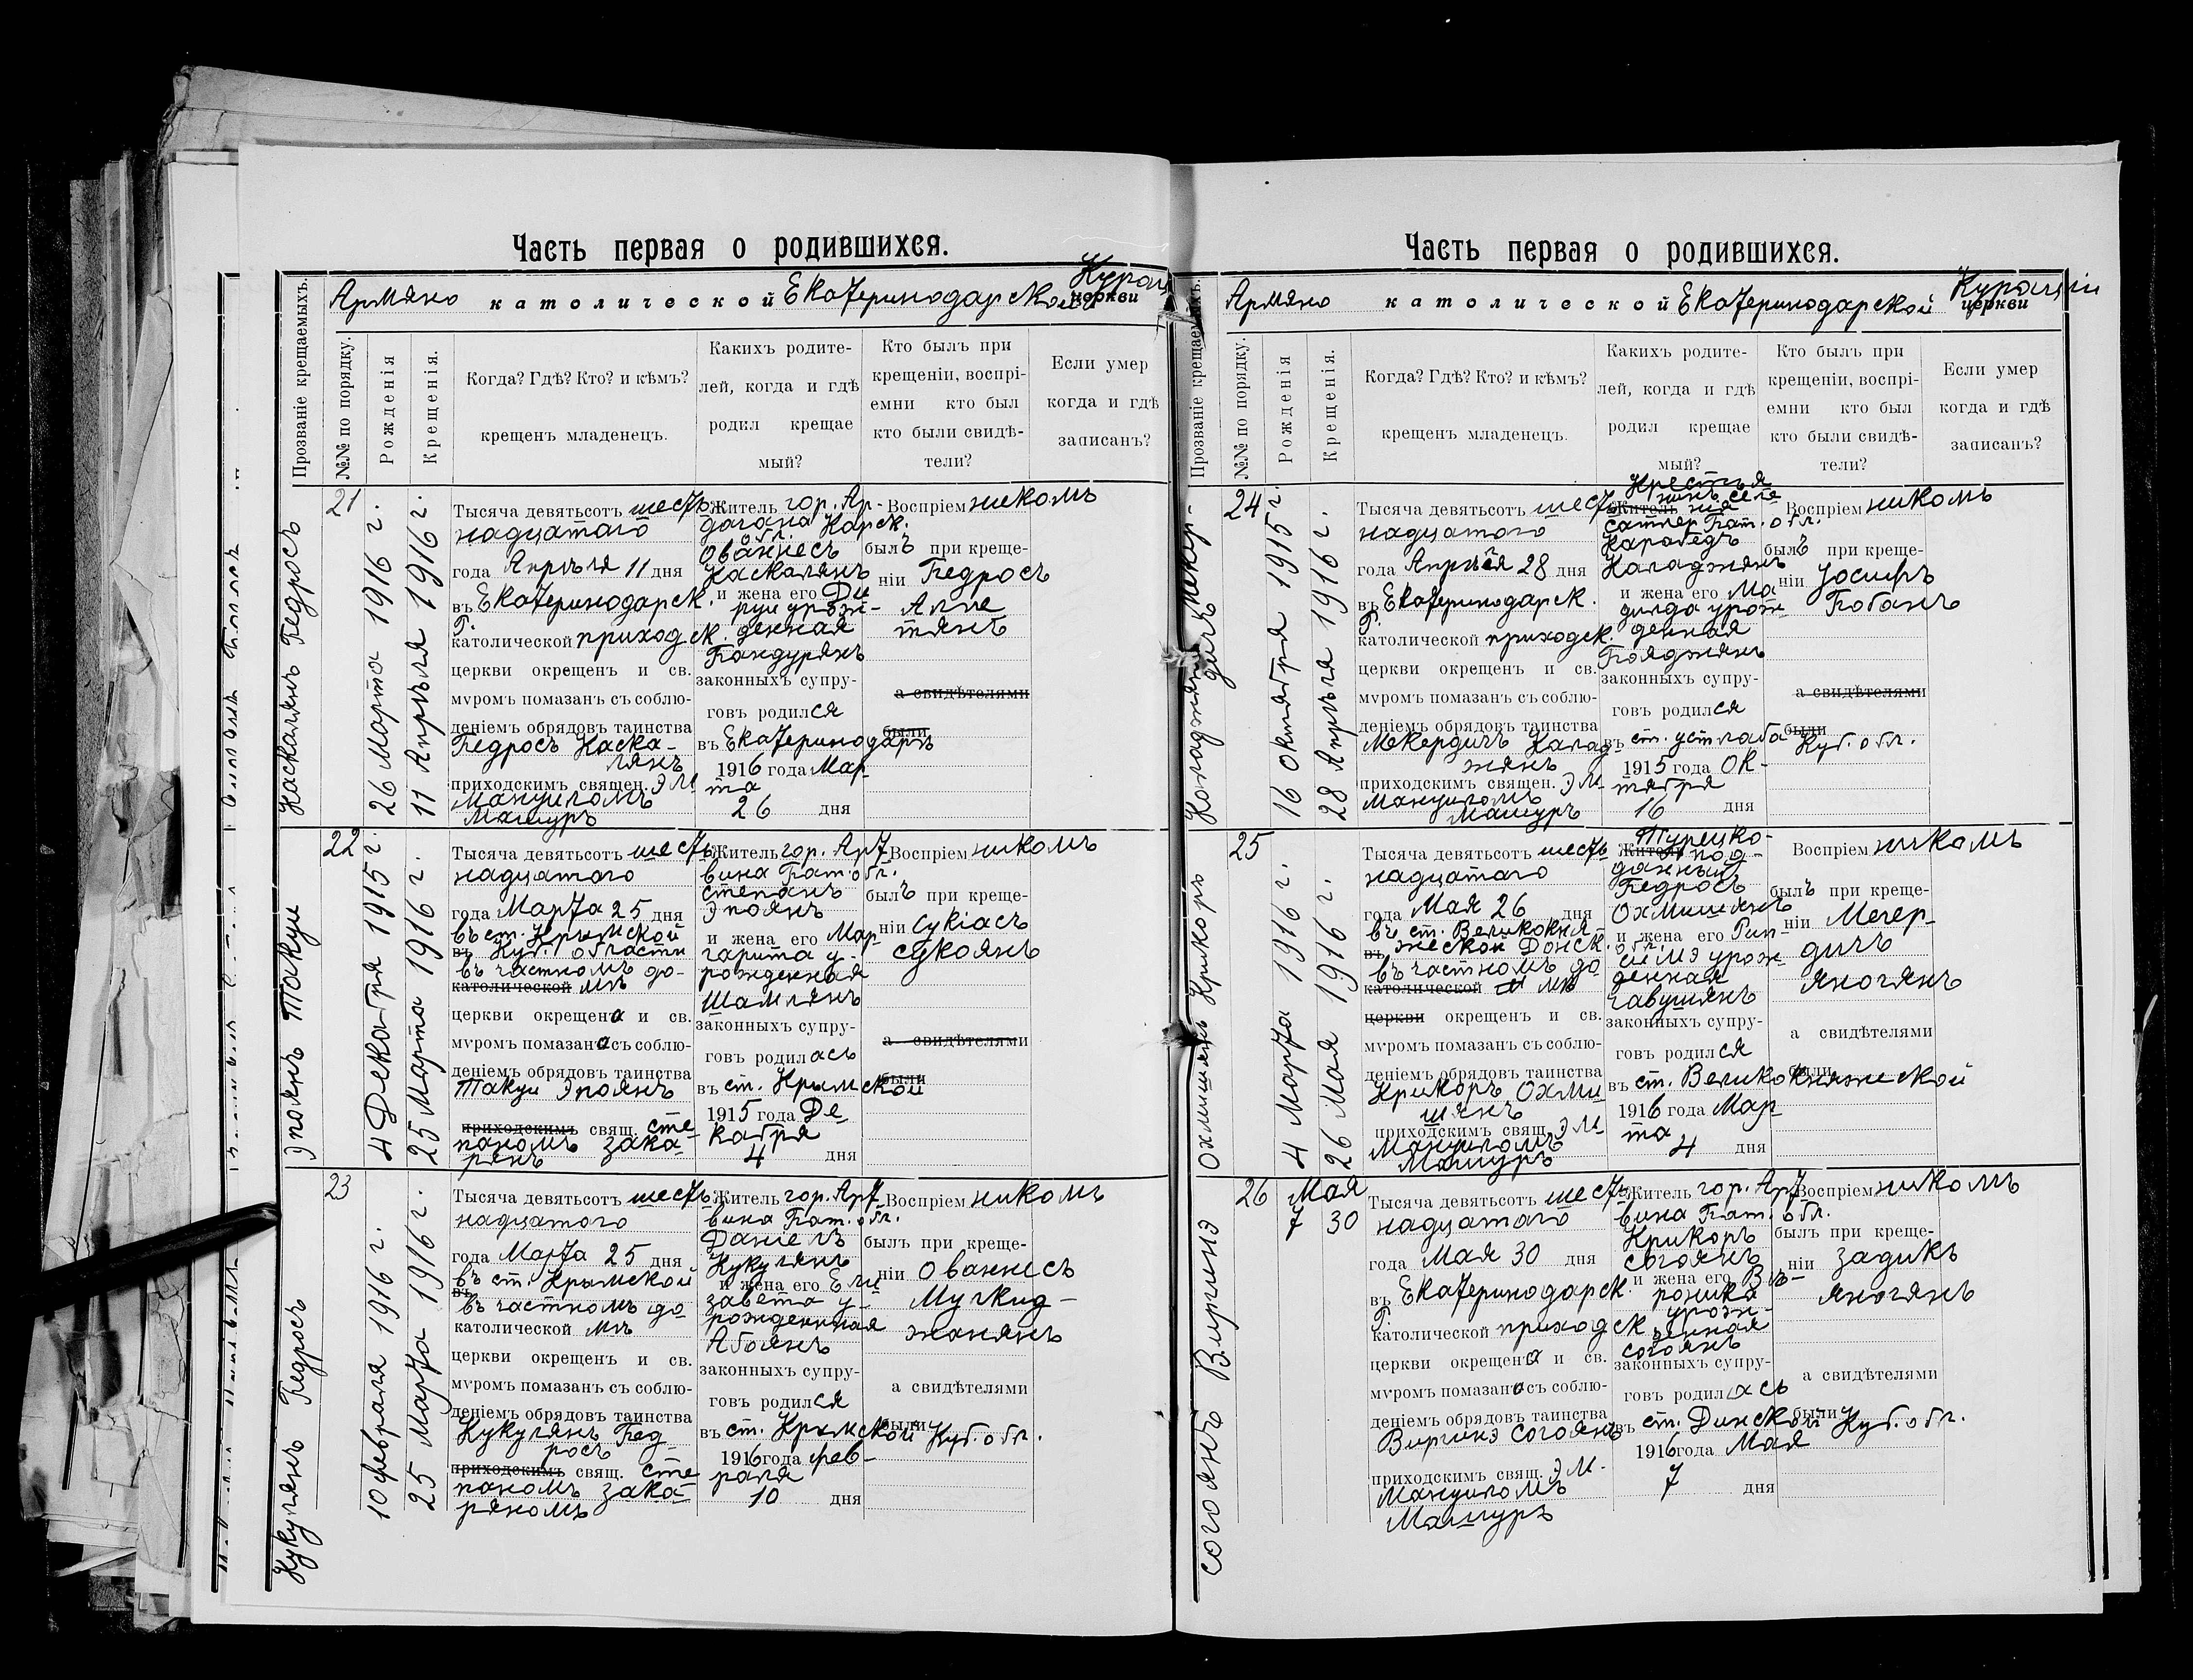 Часть первая о родившихся.
Армяно католической Екатеринодарской Курац
церкви
Прозваніе крещаемыхъ.
№№ по порядку.
Рожденія
Крещенія.
Когда? Гдѣ? Кто? и кѣмъ?
крещенъ младенецъ.
Какихъ родите-
лей, когда и гдѣ
родил крещае
мый?
Кто былъ при
крещеніи, воспрі-
емни кто был
кто были свидѣ-
тели?
Если умер
когда и гдѣ
записанъ?
Каскалянъ Педросъ
21
26 Марта 1916 г.
11 Апрѣля 1916 г.
Тысяча девятьсот шесть
надцатаго
года Апрѣля 11 дня
въ Екатеринодарск.
Р.
католической приходск.
церкви окрещен и св.
муромъ помазан съ соблю-
деніемъ обрядовъ таинства
Педросъ Каска-
лянъ
приходскимъ священ. Эм
Мануиломъ
Машуръ
Житель гор. Ар-
дагана Карск.
обл.
Ованнесъ
Каскалянъ
и жена его Ди
руи урож-
денная
Пандурянъ
законныхъ супру-
говъ родился
въ Екатеринодаръ
1916 года Мар
та
26 дня
Воспріемникомъ
былъ при креще-
ніи Педросъ
Алпе
тянъ
а свидѣтелями
были
Эпоянъ Такуи
22
4 Декабря 1915 г.
25 Марта 1916 г.
Тысяча девятьсот шесть
надцатаго
года Марта 25 дня
въ ст. Крымской
въ Куб. области
въ частномъ до-
католической мъ
церкви окрещена и св.
муромъ помазана съ соблю-
деніемъ обрядовъ таинства
Такуи Эпоянъ
приходскимъ свящ. Сте
паномъ Зака-
рянъ
Житель гор. Арт
вина Бат. обл.
Степанъ
Эпоянъ
и жена его Мар-
гарита у-
рожденная
Шамлянъ
законныхъ супру-
говъ родилась
въ ст. Крымской
1915 года Де
кабря
4 дня
Воспріемникомъ
былъ при креще-
ніи Сукіасъ
Сукоянъ
а свидѣтелями
были
Кукулянъ Педросъ
23
10 февраля 1916 г.
25 Марта 1916 г.
Тысяча девятьсот шесть
надцатаго
года Марта 25 дня
въ ст. Крымской
въ
въ частномъ до
католической мъ
церкви окрещенъ и св.
муромъ помазан съ соблю-
деніемъ обрядовъ таинства
Кукулянъ Пед
росъ
приходскимъ свящ. Сте
паномъ Зака-
ряномъ
Житель гор. Арт
вина Бат. обл.
Даніелъ
Кукулянъ
и жена его Ели
завета у-
рожденная
Абоянъ
законныхъ супру-
говъ родился
въ ст. Крымской Куб. обл.
1916 года фев-
раля
10 дня
Воспріемникомъ
былъ при креще-
ніи Ованнесъ
Мучкид-
жанянъ
а свидѣтелями
были
Часть первая о родившихся.
Армяно католической Екатеринодарской Кураціи
церкви
Прозваніе крещаемыхъ.
№№ по порядку.
Рожденія
Крещенія.
Когда? Гдѣ? Кто? и кѣмъ?
крещенъ младенецъ.
Какихъ родите-
лей, когда и гдѣ
родил крещае
мый?
Кто былъ при
крещеніи, воспрі-
емни кто был
кто были свидѣ-
тели?
Если умер
когда и гдѣ
записанъ?
Каладжянъ Мекер-
дичъ
24
16 Октября 1915 г.
28 Апрѣля 1916 г.
Тысяча девятьсот шесть
надцатаго
года Апрѣля 28 дня
въ Екатеринодарск.
Р.
католической приходск.
церкви окрещен и св.
муромъ помазан съ соблю-
деніемъ обрядовъ таинства
Мекердичъ Калад
жянъ
приходскимъ священ. Эм
Мануиломъ
Машуръ
Крестья
нинъ селе
Житель нія
Сатлер Бат. обл.
Карабедъ
Каладжянъ
и жена его Ма
дилда урож
денная
Пояджянъ
законныхъ супру-
говъ родился
въ ст. Устлаба Куб. обл.
1915 года Ок-
тября
16 дня
Воспріемникомъ
былъ при креще-
ніи Іосифъ
Бабанъ
а свидѣтелями
были
Охмишянъ Крикоръ
25
4 Марта 1916 г.
26 Мая 1916 г.
Тысяча девятьсот шесть
надцатаго
года Мая 26 дня
въ ст. Великокня-
въ жеской Донск. обл.
въ частномъ до
католической мъ
церкви окрещен и св.
муромъ помазан съ соблю-
деніемъ обрядовъ таинства
Крикоръ Охми
шянъ
приходскимъ свящ. Эм
Мануиломъ
Машуръ
Турецко-
Житель под-
данный
Педросъ
Охмишянъ
и жена его Рип-
симэ урож-
денная
Чавушянъ
законныхъ супру-
говъ родился
въ ст. Великокняжеской
1916 года Мар
та
4 дня
Воспріемникомъ
былъ при креще-
ніи Мегер-
дичъ
Яногянъ
а свидѣтелями
были
Согоянъ Виргинэ
26
Мая
7
30
Тысяча девятьсот шесть
надцатаго
года Мая 30 дня
въ Екатеринодарск.
Р.
католической приходск.
церкви окрещена и св.
муромъ помазана съ соблю-
деніемъ обрядовъ таинства
Виргинэ Согоянъ
приходскимъ свящ. Эм-
Мануиломъ
Машуръ
Житель гор. Арт
вина Бат. обл.
Крикоръ
Согоянъ
и жена его Ве-
роника
урож-
денная
Согоянъ
законныхъ супру-
говъ родилась
въ ст. Динской Куб. обл.
1916 года Мая
7 дня
Воспріемникомъ
был при креще-
ніи Задикъ
Яногянъ
а свидѣтелями
были